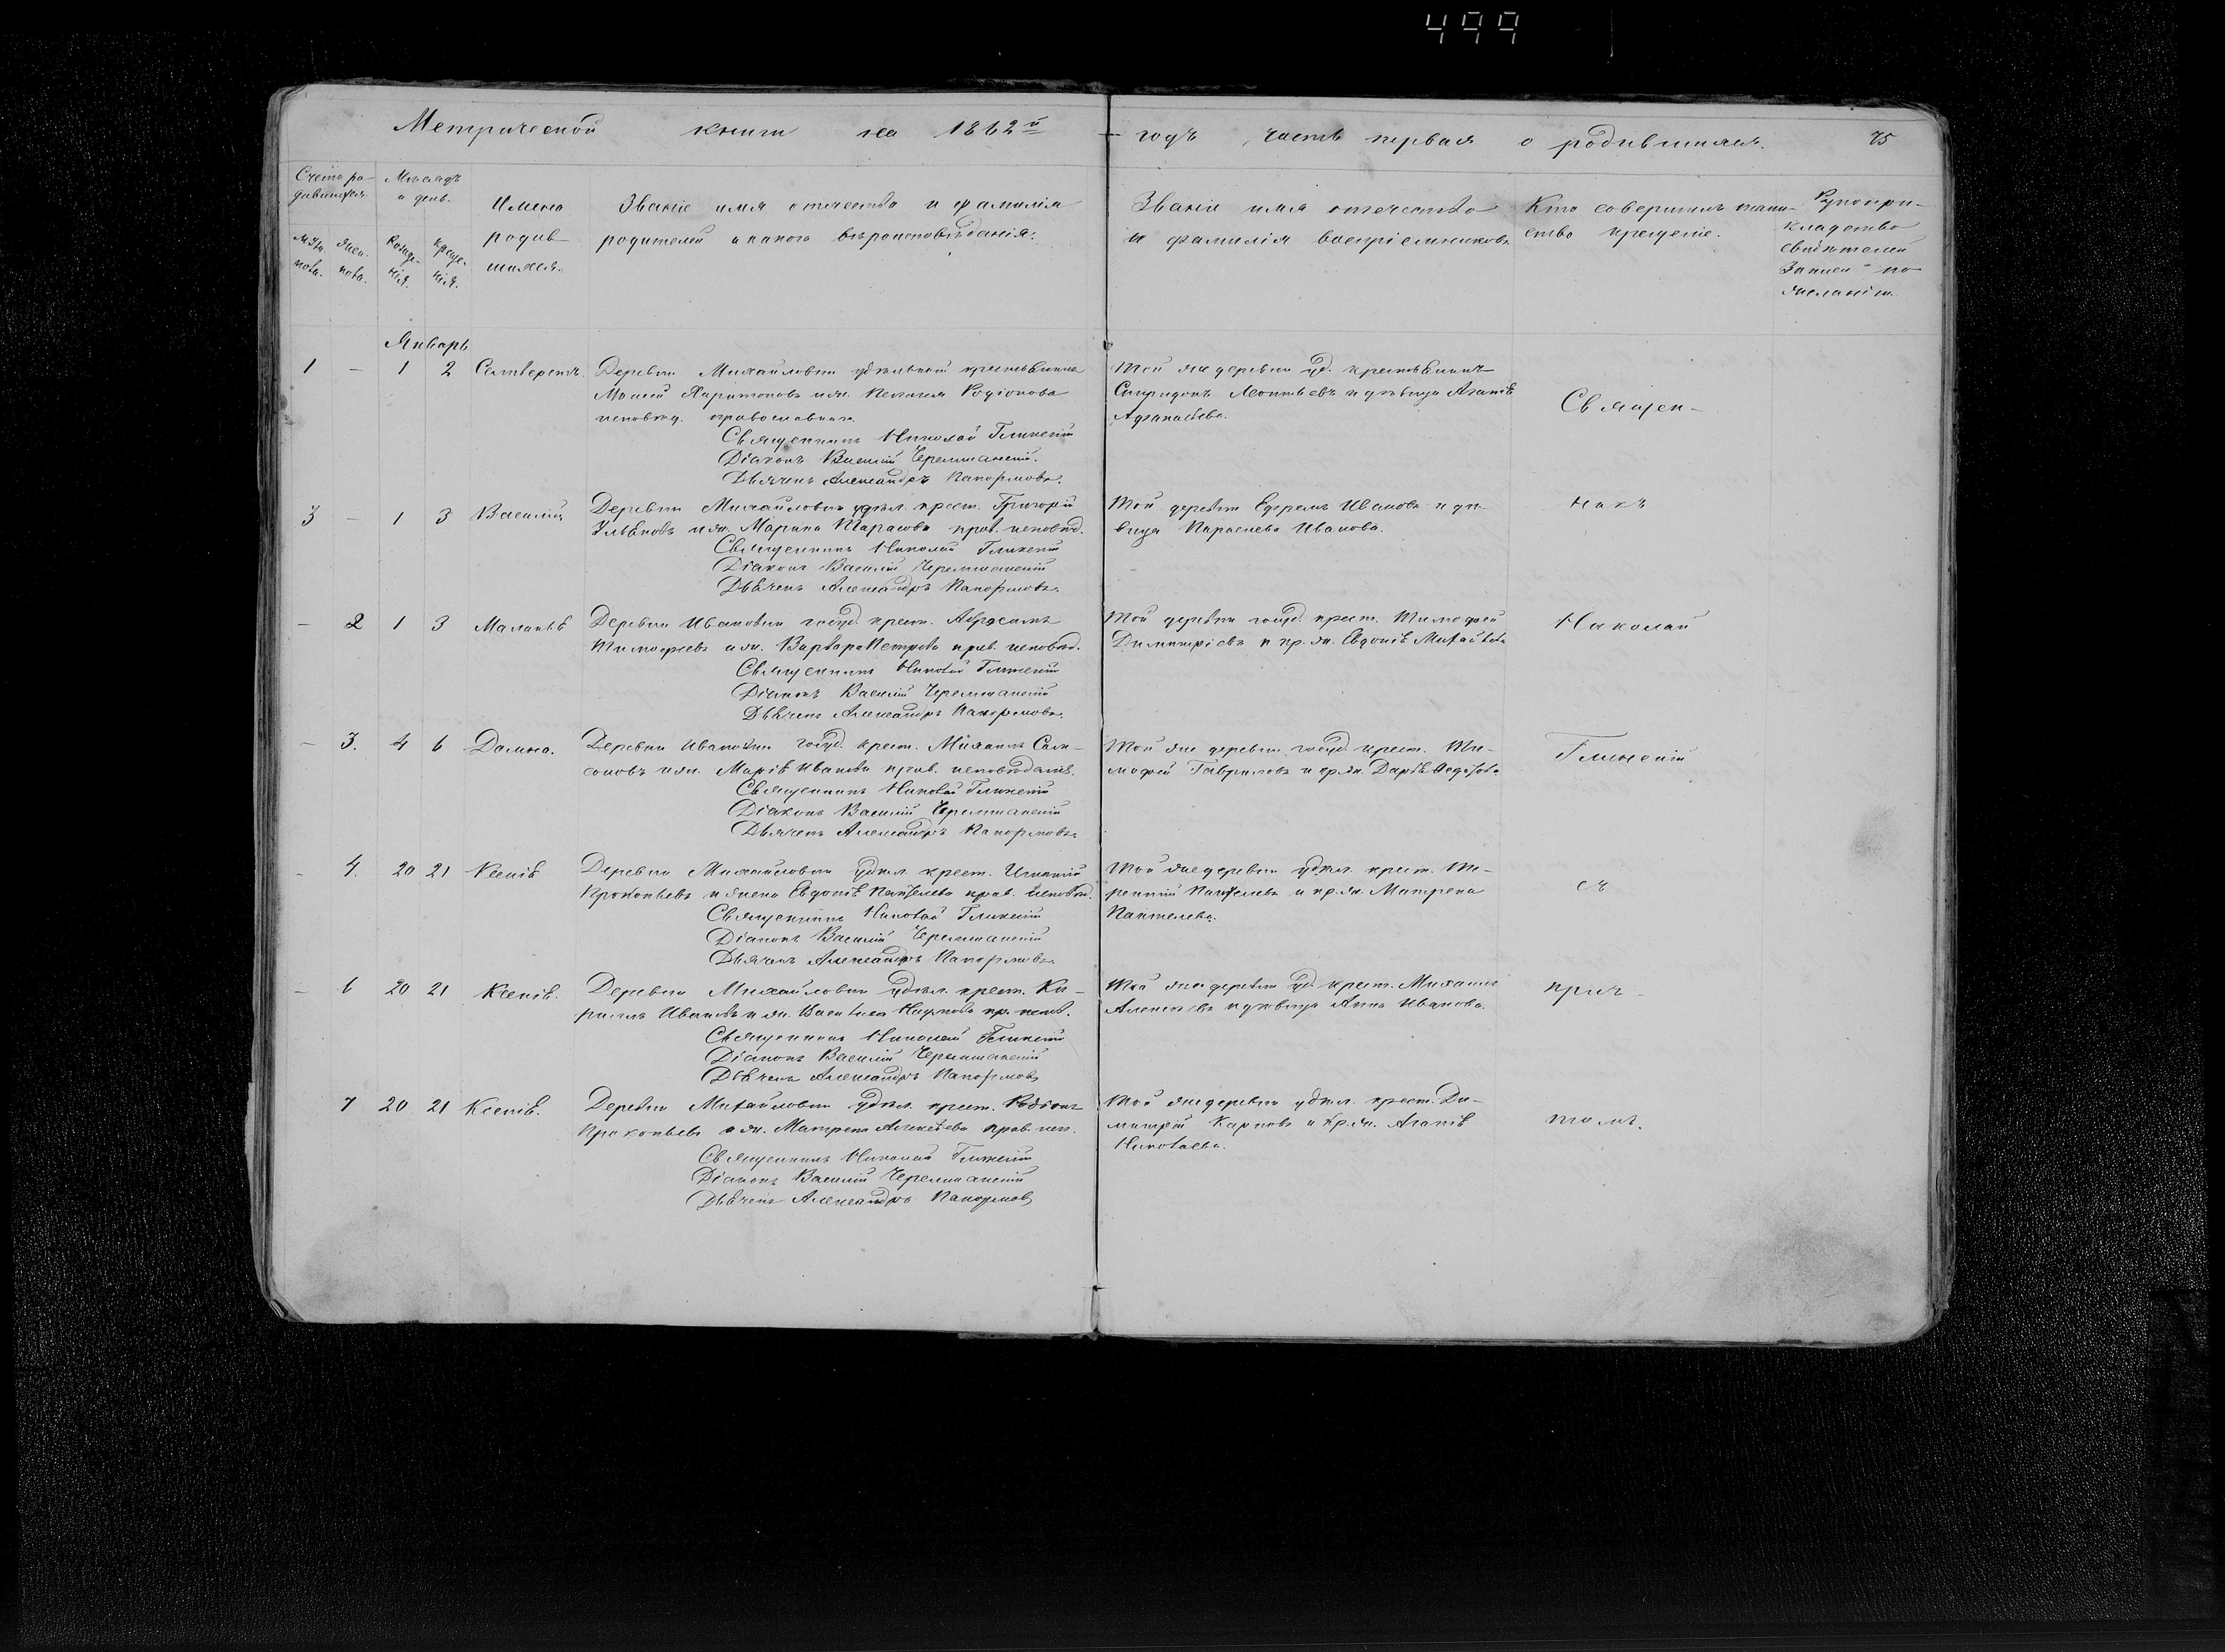 499
Метрической книги на 1862й годъ часть первая о родившихся. 75
Счетъ ро-
дившихся.
Муж.
пола.
Жен.
пола.
Мѣсяцъ
и день.
Рожде-
нія.
Креще-
нія.
Имена
родив-
шихся.
Званіе имя отчество и фамилія
родителей и какого вѣроисповѣданія.
Званіе имя отчество
и фамилія воспріемниковъ
Кто совершилъ таин-
ство крещеніе.
Рукопри-
кладство
свидѣтелей
записи по
желанію.
Январь
1 — 1 2 Селиверстъ. Деревни Михайловки удѣльный крестьѣнинъ
Моисей Харитоновъ и ж. Пелагия Родіонова
исповѣд. православнаго.
Священникъ Николай Глинскій
Діаконъ Василій Черемшанскій.
Дьячекъ Александръ Напормовъ.
Той же деревни уд. крестьѣнинъ
Спиридонъ Леонтьевъ и дѣвица Агапіѣ
Афанасьева.
Священ-
3 — 1 3 Василій Деревни Михайловки удѣл. крест. Григорій
Ульѣновъ и ж. Марина Тарасова прав. исповѣд.
Священникъ Николай Глинскій
Діаконъ Василій Черемшанскій
Дьѣчекъ Александръ Напормовъ.
Той деревни Ефремъ Ивановъ и дѣ-
вица Параскева Иванова.
никъ
— 2 1 3 Маланьѣ Деревни Ивановки госуд. крест. Аврамъ
Тимофеевъ и ж. Варвара Петрова прав. исповѣд.
Священникъ Николай Глинскій
Діаконъ Василій Черемшанскій
Дьѣчекъ Александръ Напормовъ.
Той деревни госуд. крест. Тимофей
Димитріевъ и кр. ж. Евдокіѣ Михайлова
Николай
— 3. 4 6 Домна. Деревни Ивановки госуд. крест. Михаилъ Сам-
соновъ и ж. Маріѣ Иванова прав. исповѣданіѣ.
Священникъ Николай Глинскій
Діаконъ Василій Черемшанскій
Дьячекъ Александръ Напормовъ.
Той же деревни госуд. крест. Ти-
мофей Гавриловъ и кр. ж. Дарьѣ Федотова
Глинскій
— 4. 20 21 Ксеніѣ Деревни Михайловки удѣл. крест. Игнатій
Прокопьевъ и жена Евдокіѣ Пантелева прав. исповѣд.
Священникъ Николай Глинскій
Діаконъ Василій Черемшанскій
Дьячекъ Александръ Напормовъ.
Той же деревни удѣл. крест. Те-
рентій Пантелевъ и кр. ж. Матрена
Пантелева.
съ
— 6 20 21 Ксеніѣ. Деревни Михайловки удѣл. крест. Ки-
риллъ Ивановъ и ж. Василиса Наумова пр. испов.
Священникъ Николай Глинскій
Діаконъ Василій Черемшанскій
Дьѣчекъ Александръ Напормовъ
Той же деревни уд. крест. Михаилъ
Алексѣевъ и дѣвица Анна Иванова.
прич-
7 20 21 Ксеніѣ. Деревни Михайловки удѣл. крест. Родіонъ
Прокопьевъ и ж. Матрена Алексѣева прав. исп.
Священникъ Николай Глинскій
Діаконъ Василій Черемшанскій
Дьѣчекъ Александръ Напормовъ
Той же деревни удѣл. крест. Ди-
митрій Карповъ и кр. ж. Агапіѣ
Николаева.
томъ.